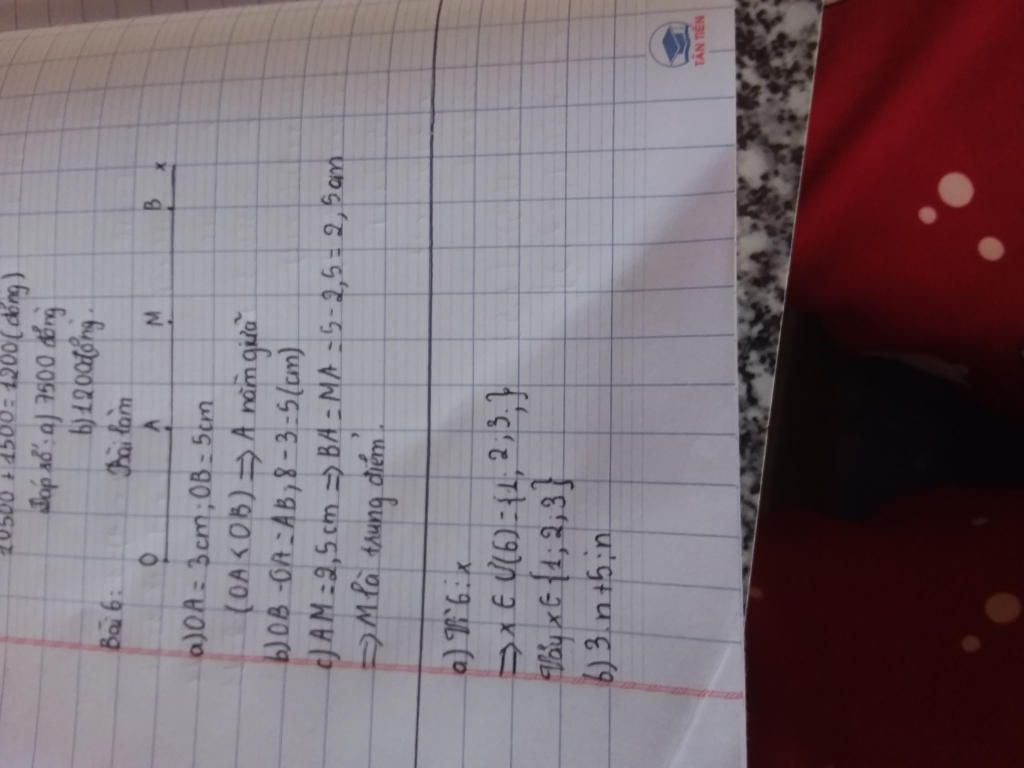 10500 + 1500 = 1200 (đồng)
Đáp số: a) 7500 đồng
b) 1200 đồng.
Bài 6: Bài làm
O A M B x
a) OA = 3cm; OB = 5cm
(OA < OB) => A nằm giữa
b) OB - OA = AB, 8 - 3 = 5 (cm)
c) AM = 2,5 cm => BA = MA = 5 - 2,5 = 2,5cm
=> M là trung điểm.
a) Vì 6 : x
=> x ∈ Ư(6) = {1; 2; 3;}
Vậy x ∈ {1; 2; 3}
b) 3 n + 5 : n
TÂN TIẾN